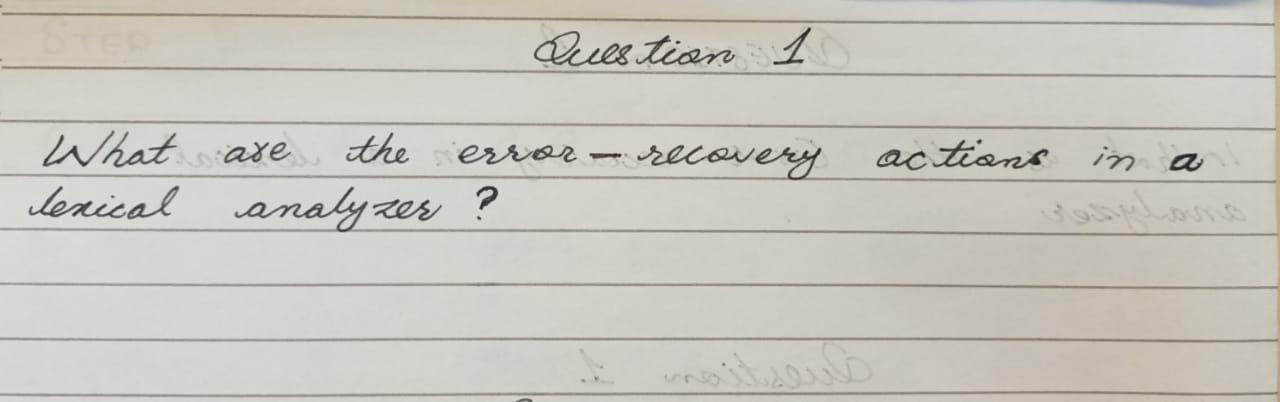 Question 1
What are the error-recovery actions in a
lexical analyzer ?